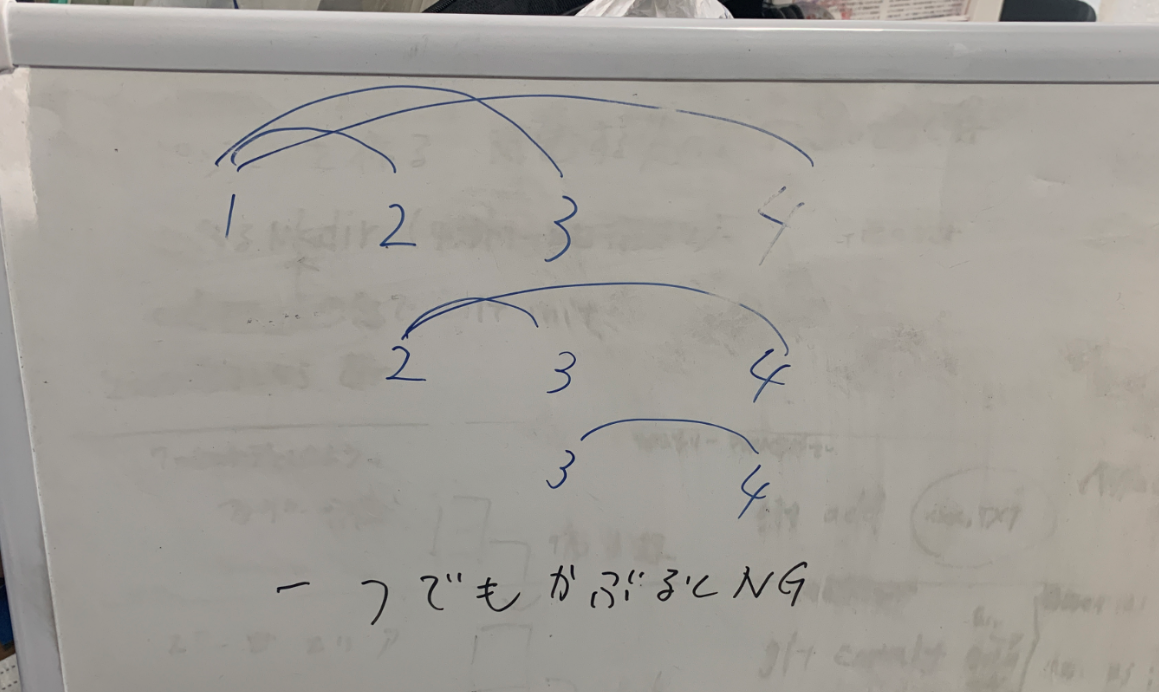 1 2 3 4
2 3 4
3 4
一つでもかぶるとNG